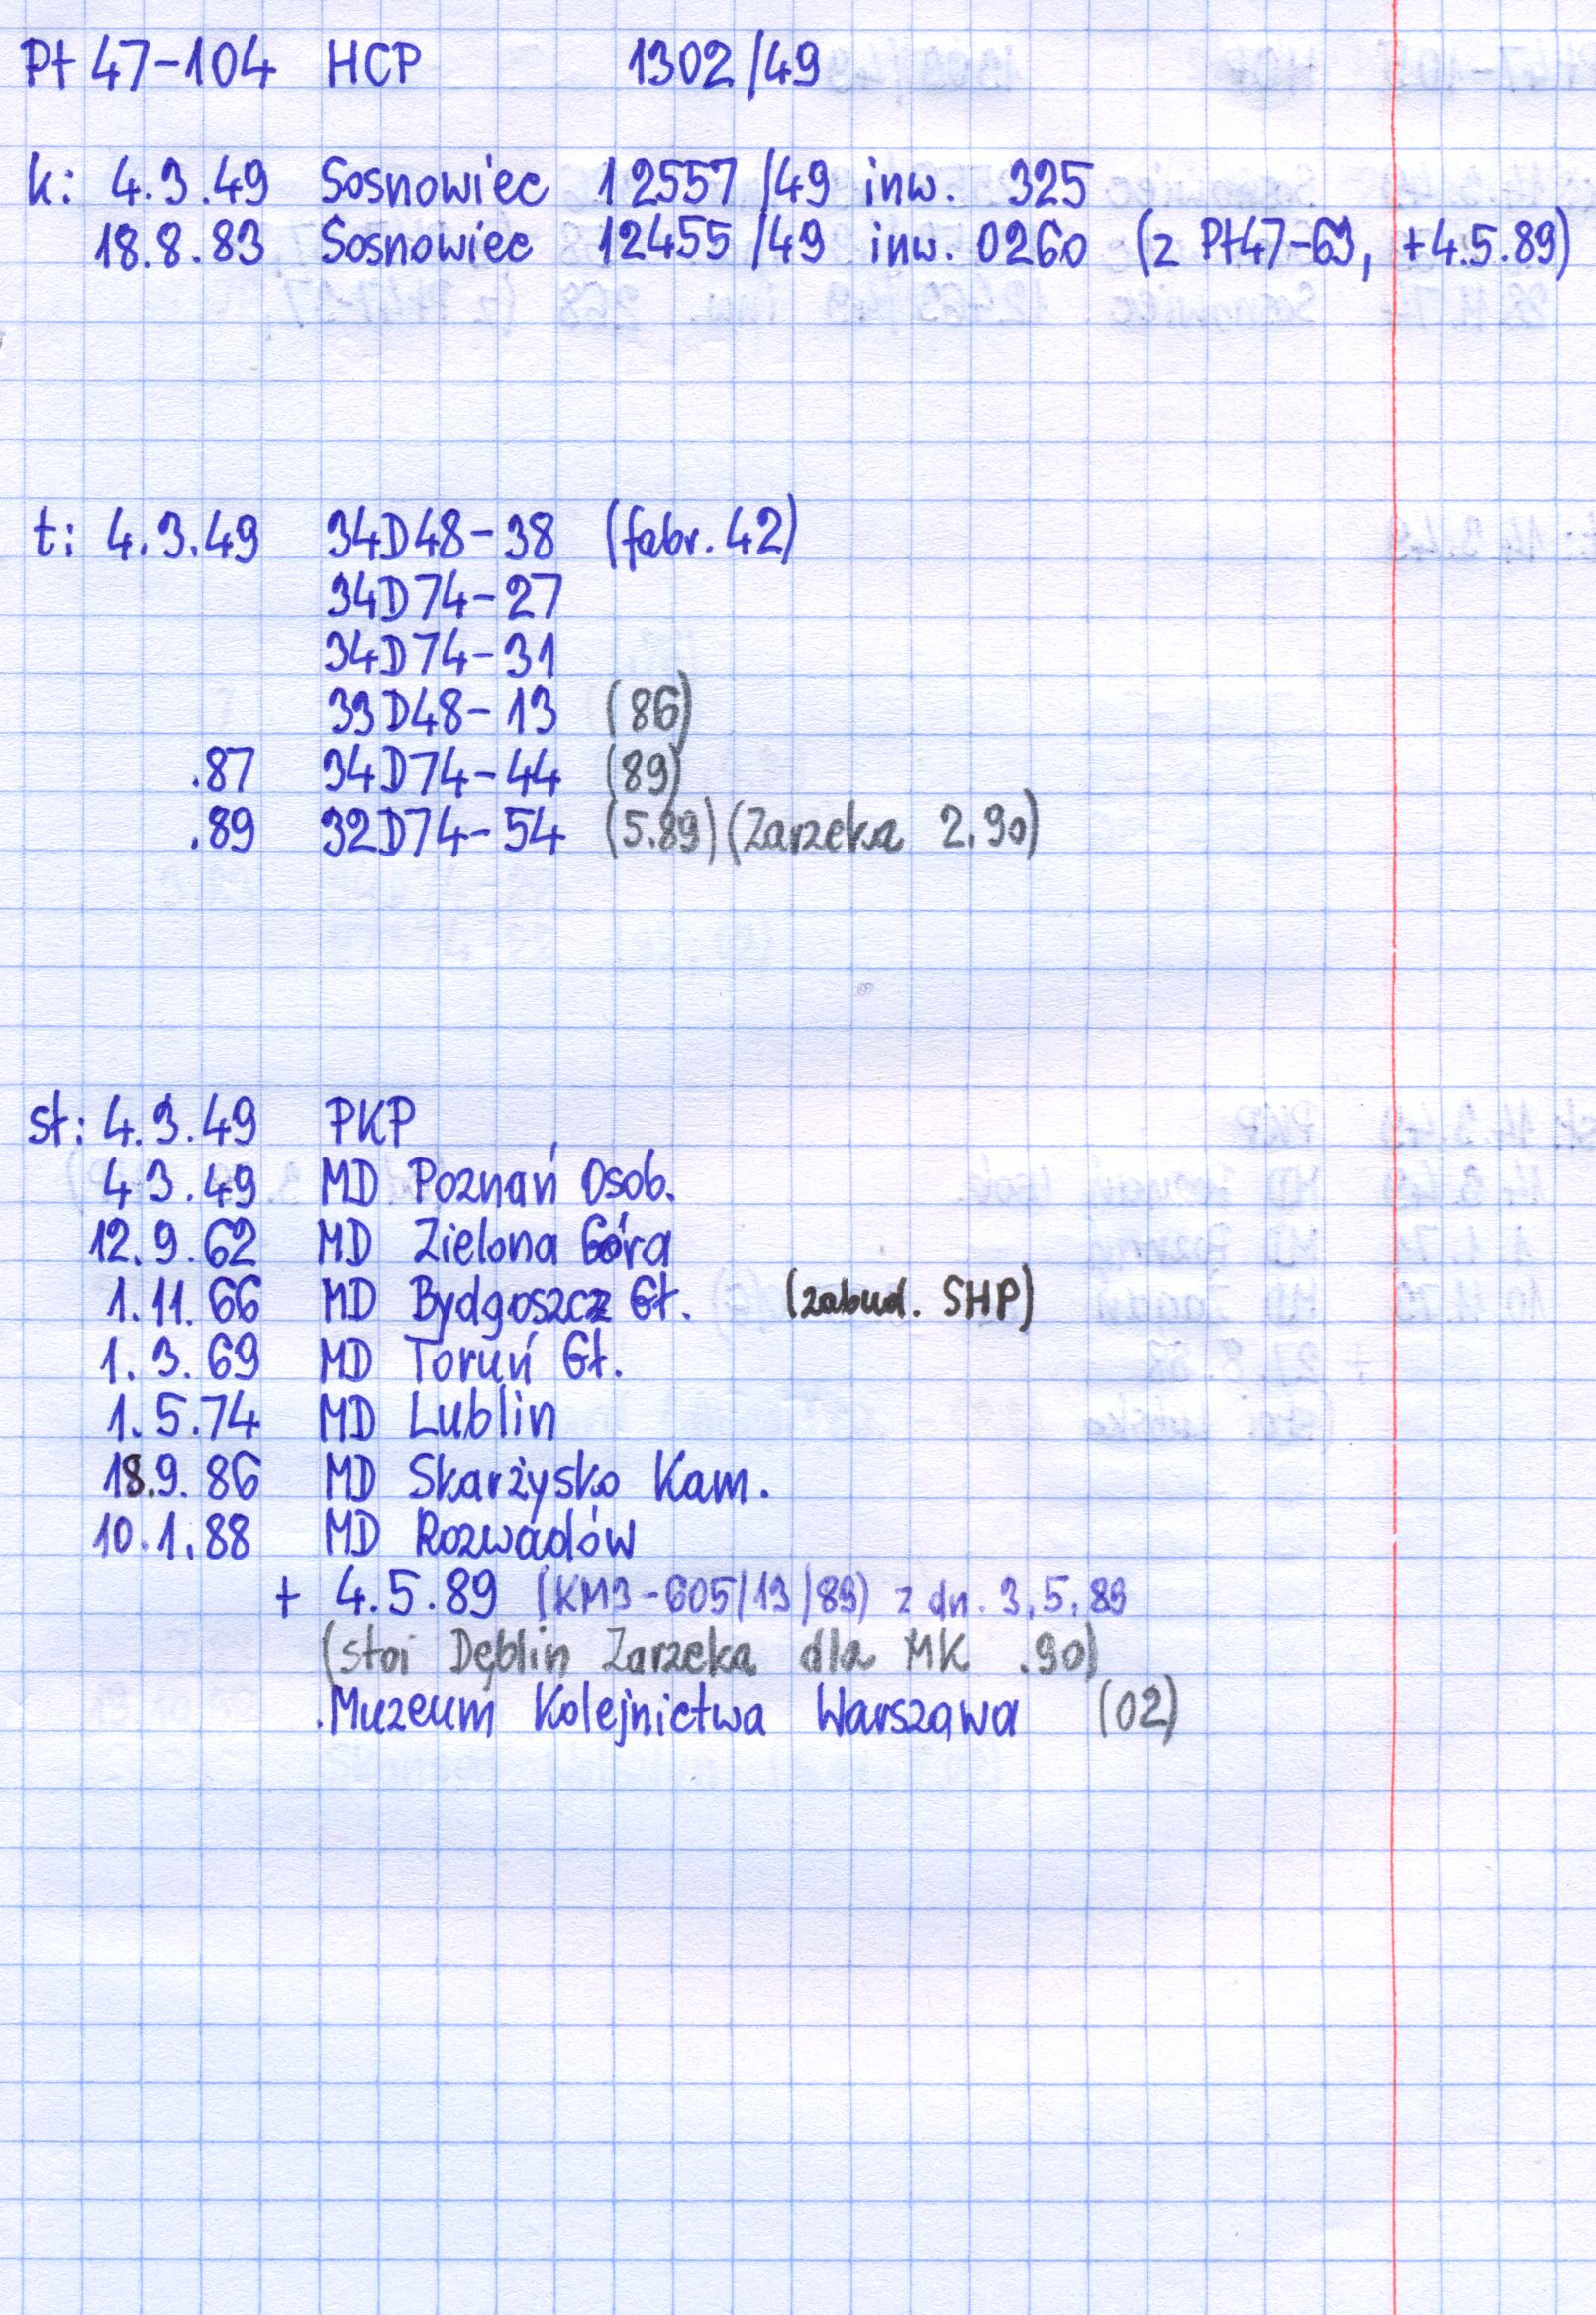 Pt 47-104 HCP 1302/49
k: 4.3.49 Sosnowiec 12557/49 inw. 325
18.8.83 Sosnowiec 12455/49 inw. 0260 (z Pt47-63, +4.5.89)
t: 4.3.49 34D48-38 (fabr. 42)
34D74-27
34D74-31
33D48-13 (86)
.87 34D74-44 (89)
.89 32D74-54 (5.89) (Zarzeka 2.90)
st: 4.3.49 PKP
4 3.49 MD Poznań Osob.
12.9.62 MD Zielona Góra
1.11.66 MD Bydgoszcz Gł. (zabud. SHP)
1.3.69 MD Toruń Gł.
1.5.74 MD Lublin
18.9.86 MD Skarżysko Kam.
10.1.88 MD Rozwadów
+ 4.5.89 (KM3-605/13/89) z dn. 3.5.89
(stoi Dęblin Zarzeka dla MK .90)
.Muzeum Kolejnictwa Warszawa (02)